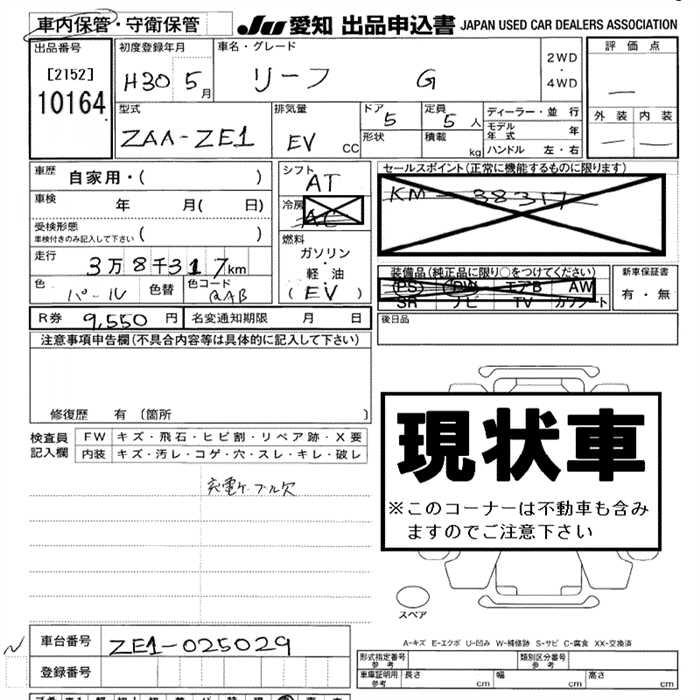 車内保管・守衛保管
JU 愛知 出品申込書 JAPAN USED CAR DEALERS ASSOCIATION
出品番号
[2152]
10164
初度登録年月
H30 5月
車名・グレード
リーフ G
2WD
・
4WD
評価点
―
外装 内装
― ―
型式
ZAA-ZE1
排気量
EV CC
ドア
5
形状
定員
5人
積載
kg
ディーラー・並行
モデル年式 年
ハンドル 左・右
車歴 自家用・( )
車検 年 月( 日)
受検形態
車検付きのみ記入して下さい ( )
走行 3万8千317km
色 パール 色替 色コード QAB
シフト
AT
冷房
AC
燃料
ガソリン
・
軽油
(EV)
セールスポイント(正常に機能するものに限ります)
KM―38317
装備品(純正品に限り○をつけてください)
PS PW エアB AW
SR ナビ TV カワシート
新車保証書
有・無
R券 9,550円 名変通知期限 月 日
後日品
注意事項申告欄(不具合内容等は具体的に記入して下さい)
修復歴 有〔箇所 〕
検査員記入欄
FW キズ・飛石・ヒビ割・リペア跡・X要
内装 キズ・汚レ・コゲ・穴・スレ・キレ・破レ
充電ケーブル欠
現状車
※このコーナーは不動車も含み
ますのでご注意下さい
スペア
A-キズ E-エクボ U-凹み W-補修跡 S-サビ C-腐食 XX-交換済
車台番号 ZE1-025029
登録番号
形式指定番号
参考
類別区分番号
参考
車庫証明用
参考
長さ cm 幅 cm 高さ cm